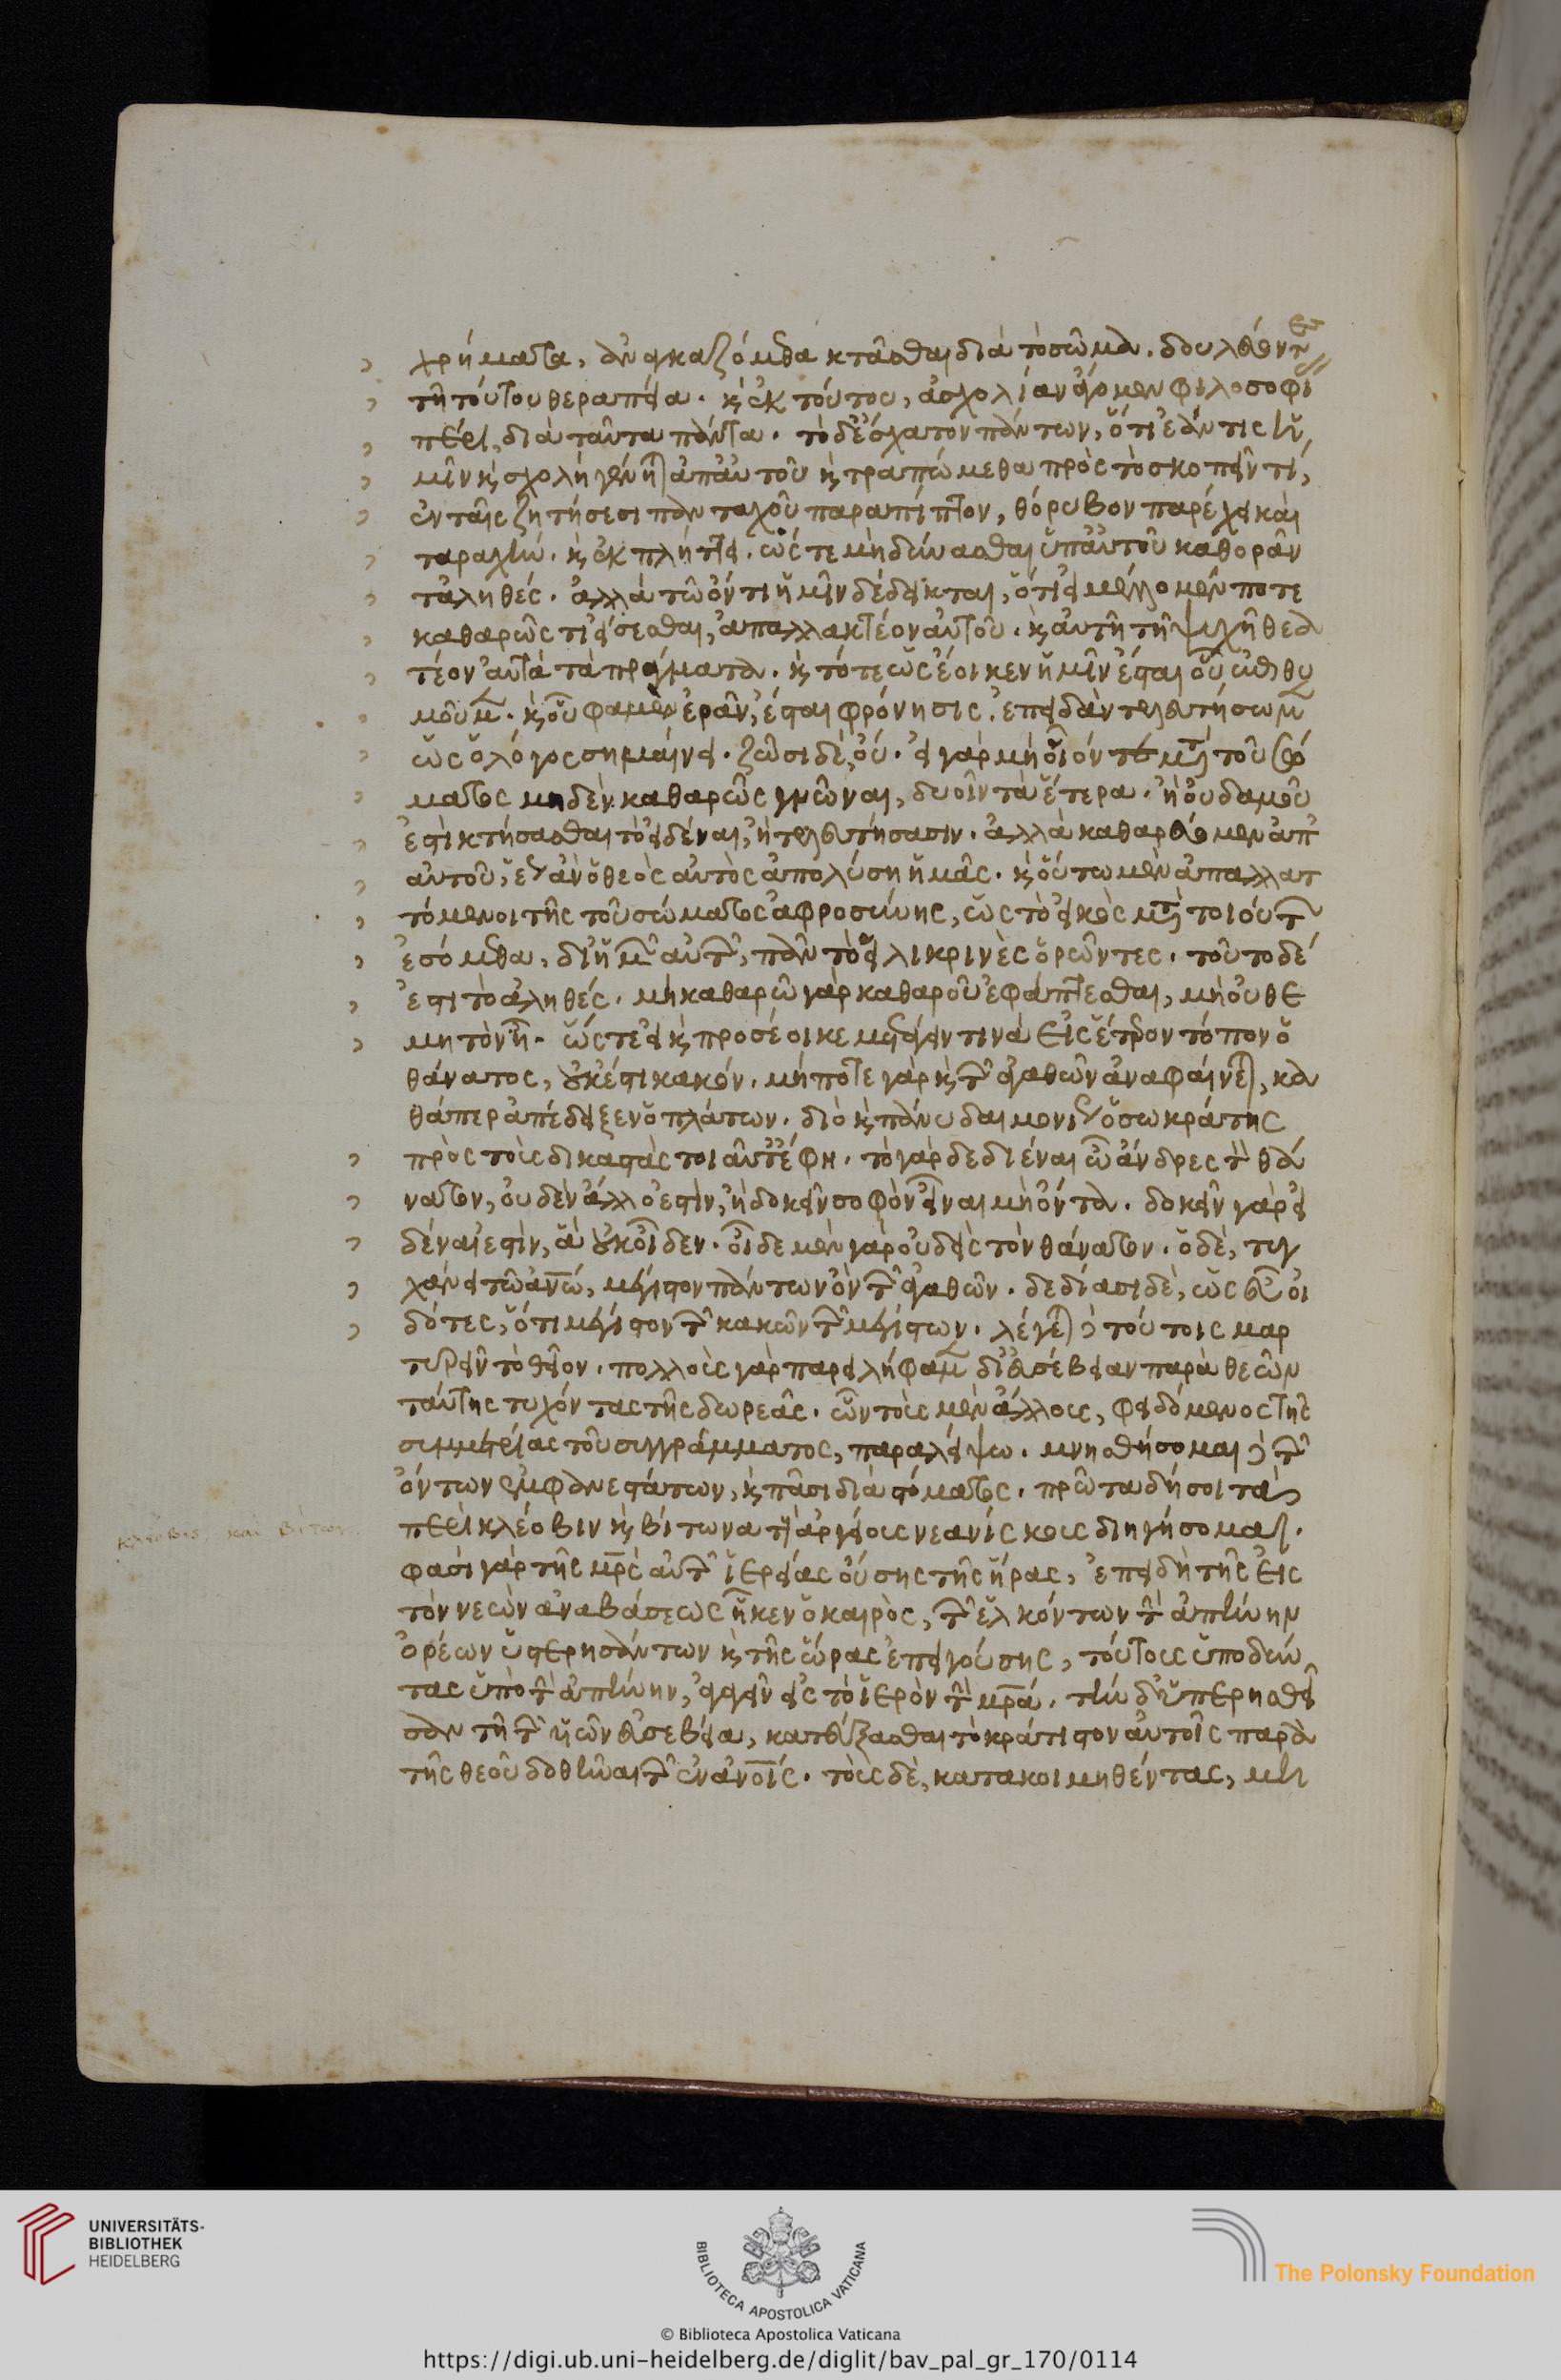 χρήματα, ἀναγκαζόμεθα κτᾶσθαι διὰ τὸ σῶμα. δουλεύοντες
τῆ τούτου θεραπεία. κ̀ ἐκ τούτου, ἀσχολίαν ἄγομεν φιλοσοφί
πέρι, διὰ ταῦτα πάντα. τὸ δ' ἔσχατον πάντων, ὅτι ἐάν τις ἡ
μῖν κ̀ σχολὴ γένηται ἀπ' αὐτοῦ κ̀ τραπώμεθα πρὸς τὸ σκοπεῖν τί,
ἐν ταῖς ζητήσεσι πανταχοῦ παραπίπτον, θόρυβον παρέχει καὶ
ταραχήν. κ̀ ἐκπλήττει. ὥστε μὴ δύνασθαι ὑπ' αὐτοῦ καθορᾶν
τἀληθές. ἀλλὰ τῶ ὄντι ἡμῖν δέδεικται, ὅτι εἰ μέλλομέν ποτε
καθαρῶς τι εἴσεσθαι, ἀπαλλακτέον αὐτοῦ. κ̀ αὐτῆ τῆ ψυχῆ θεα
τέον αὐτὰ τὰ πράγματα. κ̀ τότε ὡς ἔοικεν ἡμῖν ἔσται οὗ ἐπιθυ
μοῦμεν. κ̀ οὗ φαμὲν ἐρᾶν, ἔσται φρόνησις. ἐπειδὰν τελευτήσωμεν
ὡς ὁ λόγος σημαίνει. ζῶσι δὲ, οὔ. εἰ γὰρ μὴ οἷόν τε μετὰ τοῦ σώ
ματος μηδὲν καθαρῶς γνῶναι, δυοῖν τὰ ἕτερα. ἢ οὐδαμοῦ
ἐστὶ κτήσασθαι τὸ εἰδέναι, ἢ τελευτήσασιν. ἀλλὰ καθαρεύομεν ἀπ'
αὐτοῦ, ἕως ἂν ὁ θεὸς αὐτὸς ἀπολύση ἡμᾶς. κ̀ οὕτω μὲν ἀπαλλατ
τόμενοι τῆς τοῦ σώματος ἀφροσύνης, ὡς τὸ εἰκὸς μετὰ τοιούτων
ἐσόμεθα, δι' ἡμῶν αὐτῶν, πᾶν τὸ εἰλικρινὲς ὁρῶντες. τοῦτο δέ
ἐστι τὸ ἀληθές. μὴ καθαρῶ γὰρ καθαροῦ ἐφάπτεσθαι, μὴ οὐ θε
μητὸν ἦ. ὥστε εἰ κ̀ προσέοικε μετάγειν τινὰ εἰς ἕτερον τόπον ὁ
θάνατος, οὐκ ἔστι κακόν. μήποτε γὰρ κ̀ τῶν ἀγαθῶν ἀναφαίνεται, κα
θάπερ ἀπέδειξεν ὁ πλάτων. διὸ κ̀ πάνυ δαιμονίως ὁ σωκράτης
πρὸς τοὺς δικαστὰς τοιαῦτ' ἔφη. τὸ γὰρ δεδιέναι ὦ ἄνδρες τὸν θά
νατον, οὐδὲν ἄλλο ἐστὶν, ἢ δοκεῖν σοφὸν εἶναι μὴ ὄντα. δοκεῖν γὰρ εἰ
δέναι ἐστὶν, ἃ οὐκ οἶδεν. οἶδε μὲν γὰρ οὐδεὶς τὸν θάνατον. ὁ δὲ, τυγ
χάνει τῶ ἀνω, μέγιστον πάντων ὂν τῶν ἀγαθῶν. δεδίασι δὲ, ὡς εὖ εἰ
δότες, ὅτι μέγιστον τῶν κακῶν τῶν μεγίστων. λέγεται δὲ τούτοις μαρ
τυρεῖν τὸ θεῖον. πολλοὺς γὰρ παρειλήφαμεν δι' εὐσέβειαν παρὰ θεῶν
ταύτης τυχόντας τῆς δωρεᾶς. ὧν τοὺς μὲν ἄλλους, φειδόμενος τῆς
συμμετρίας τοῦ συγγράμματος, παραλείψω. μνησθήσομαι δὲ τῶν
ὄντων ἐμφανεστάτων, κ̀ πᾶσι διὰ στόματος. πρῶτα δή σοι τὰ
περὶ κλέοβιν κ̀ βίτωνα τοὺς ἀργείους νεανίσκους διηγήσομαι.
φασὶ γὰρ τῆς μρς αὐτῶν ἱερείας οὔσης τῆς ἥρας, ἐπειδὴ τῆς εἰς
τὸν νεὼν ἀναβάσεως ἧκεν ὁ καιρὸς, τῶν ἑλκόντων τὴν ἀπήνην
ὀρέων ὑστερησάντων κ̀ τῆς ὥρας ἐπειγούσης, τούτους ὑποδύν
τας ὑπὸ τὴν ἀπήνην, ἀγαγεῖν εἰς τὸ ἱερὸν τὴν μρα. τὴν δ' ὑπερησθεῖ
σαν τῆ τῶν υἱῶν εὐσεβεία, κατεύξασθαι τὸ κράτιστον αὐτοῖς παρὰ
τῆς θεοῦ δοθῆναι τῶν ἐν ἀνοις. τοὺς δὲ, κατακοιμηθέντας, μη
κλέοβις καὶ βίτων
UNIVERSITÄTS-
BIBLIOTHEK
HEIDELBERG
BIBLIOTECA APOSTOLICA VATICANA
The Polonsky Foundation
© Biblioteca Apostolica Vaticana
https://digi.ub.uni-heidelberg.de/diglit/bav_pal_gr_170/0114